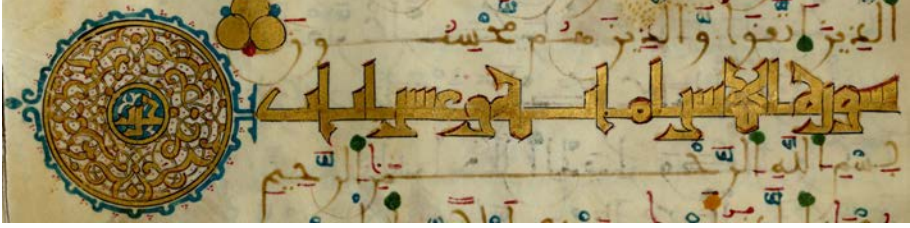 الذين اتقوا والذين هم محسنون
سورة الاسرا ماية وعشر ايات
بسم الله الرحمن الرحيم